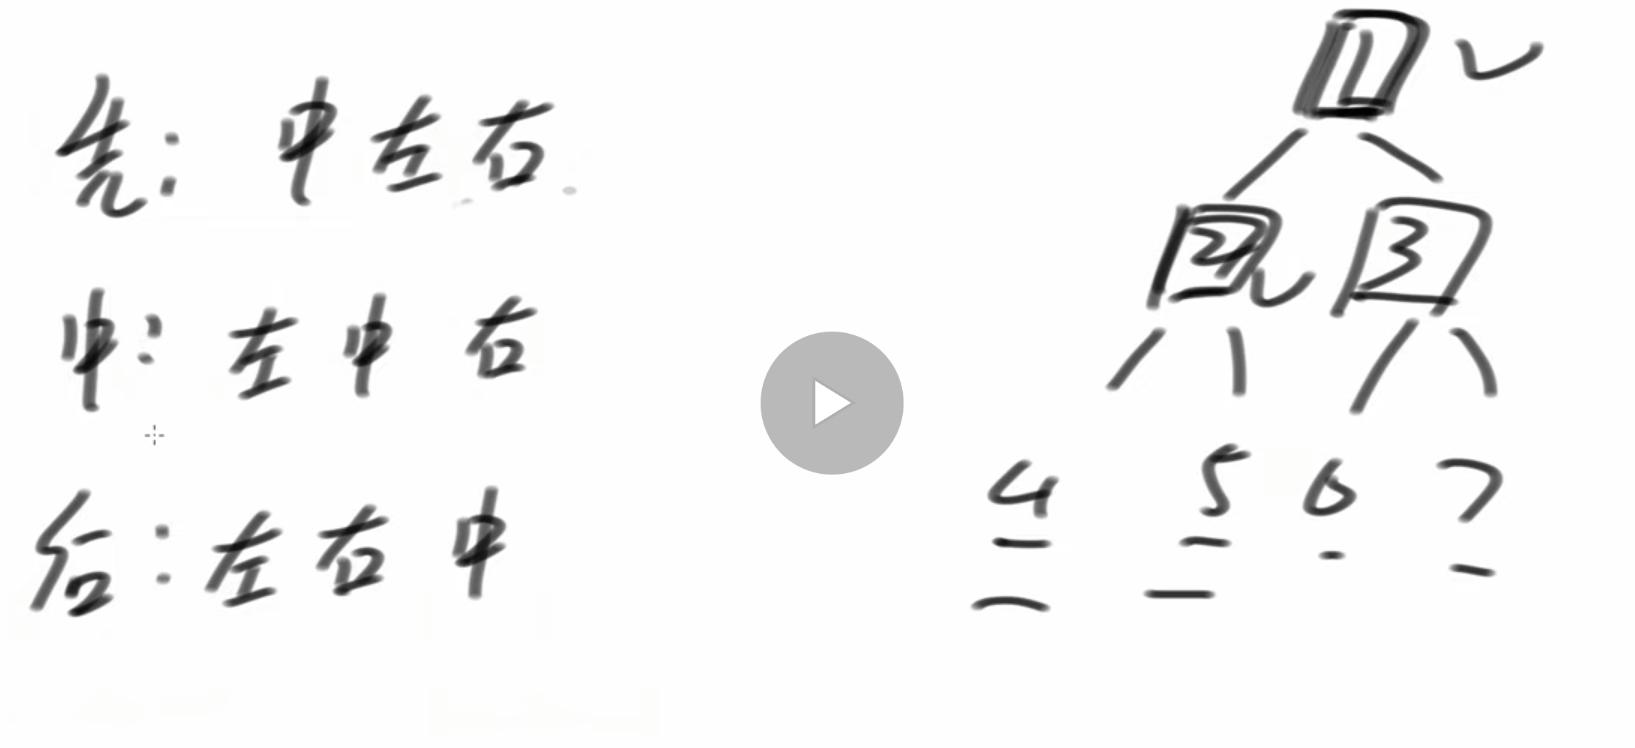 先: 中左右
中: 左中右
后: 左右中
1
2 3
4 5 6 7